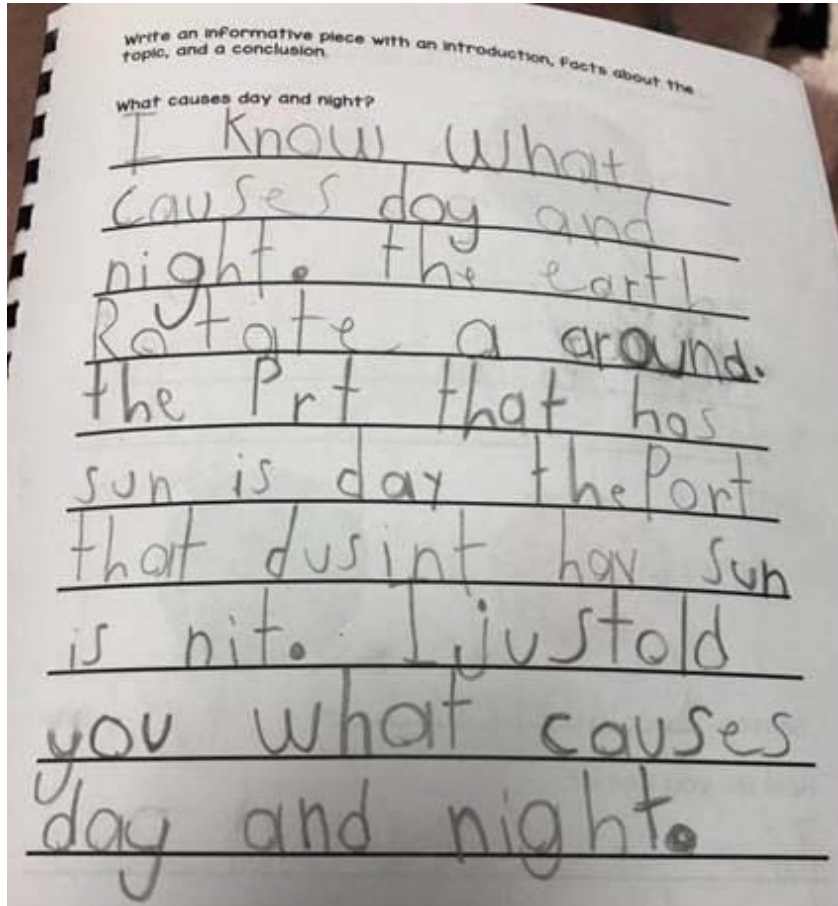 Write an informative piece with an introduction, facts about the
topic, and a conclusion.
What causes day and night?
I Know What
causes day and
night. the earth
Rotate a around.
the Prt that has
sun is day the Part
that dusint hav sun
is nit. I justold
you what causes
day and night.